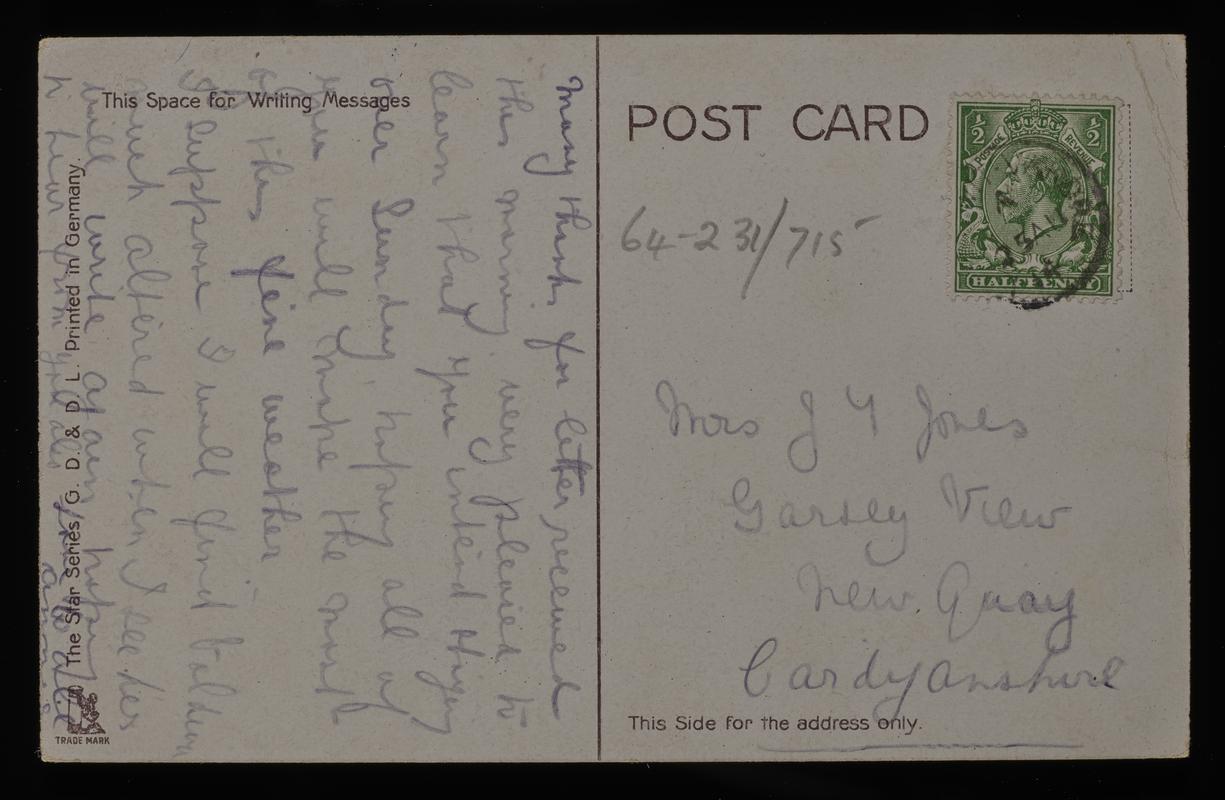 This Space for Writing Messages
Many thanks for letter received
this morning very pleased to
learn that you intend staying
over Sunday hoping all of
you will make the most
of this fine weather
I suppose I will find
much altered when I see her
will write again hoping
to hear from you
The Star Series G. D. & D. L. Printed in Germany.
TRADE MARK
POST CARD
½ ½
POSTAGE REVENUE
HALFPENNY
64-231/715
Mrs J T Jones
Garsey View
New Quay
Cardyanshire
This Side for the address only.